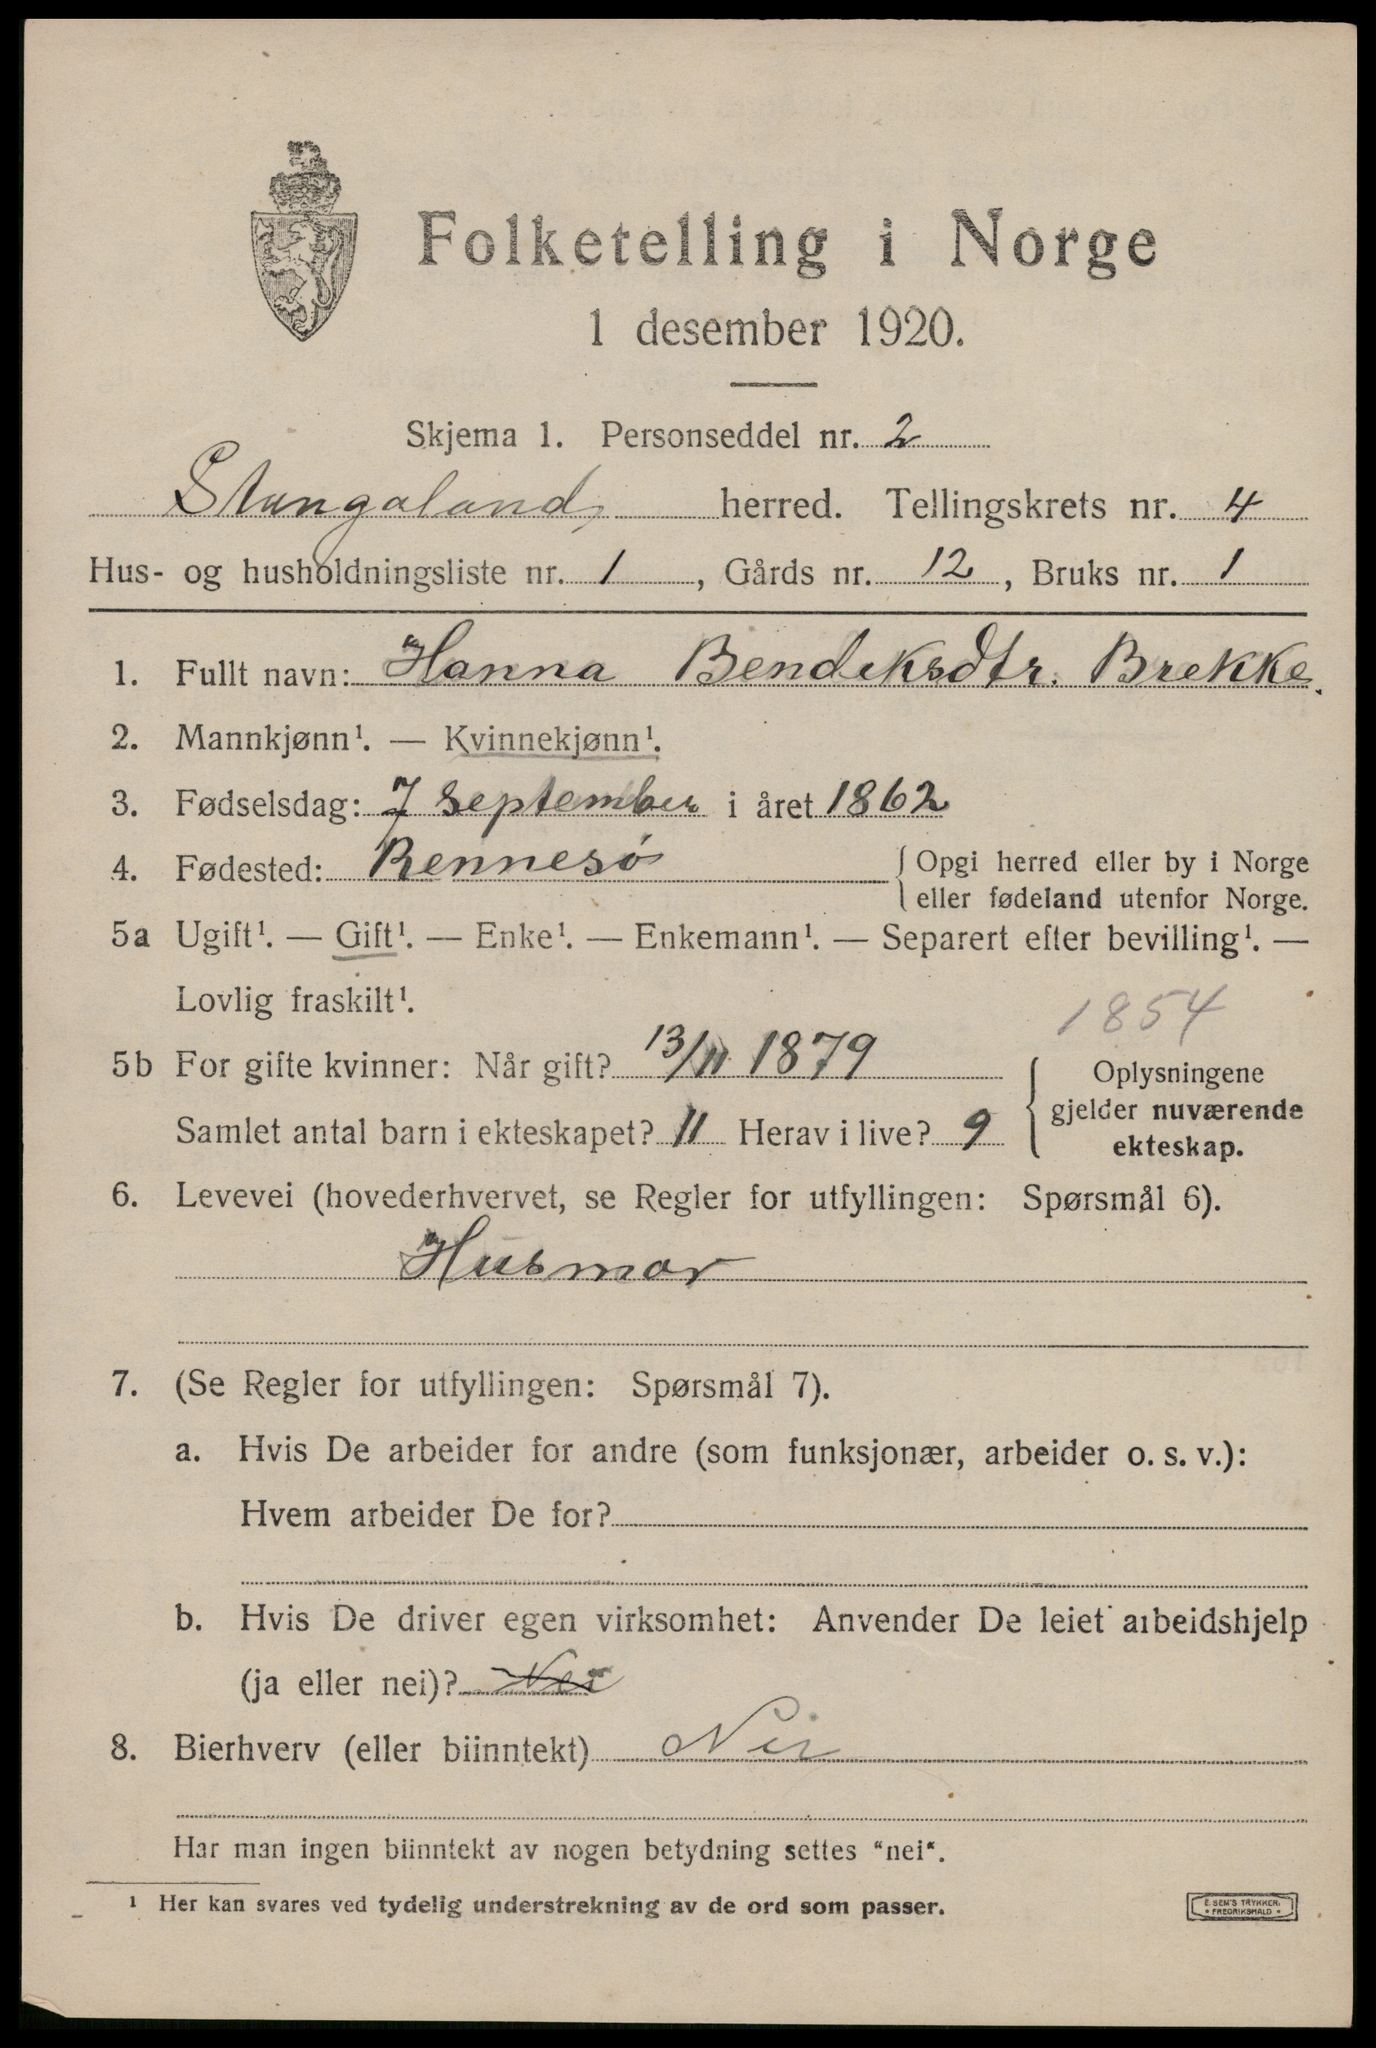 Folketelling i Norge
1 desember 1920.
Skjema 1. Personseddel nr. 2
Stangaland herred. Tellingskrets nr. 4
Hus- og husholdningsliste nr. 1, Gårds nr. 12, Bruks nr. 1
1. Fullt navn: Hanna Bendiksdtr. Brekke.
2. Mannkjønn¹. — Kvinnekjønn¹.
3. Fødselsdag: 7 September i året 1862
4. Fødested: Rennesø { Opgi herred eller by i Norge
eller fødeland utenfor Norge.
5a Ugift¹. — Gift¹. — Enke¹. — Enkemann¹. — Separert efter bevilling¹. —
Lovlig fraskilt¹.
1854
5b For gifte kvinner: Når gift? 13/11 1879
Samlet antal barn i ekteskapet? 11 Herav i live? 9
Oplysningene
gjelder nuværende
ekteskap.
6. Levevei (hovederhvervet, se Regler for utfyllingen: Spørsmål 6).
Husmor
7. (Se Regler for utfyllingen: Spørsmål 7).
a. Hvis De arbeider for andre (som funksjonær, arbeider o. s. v.):
Hvem arbeider De for?
b. Hvis De driver egen virksomhet: Anvender De leiet arbeidshjelp
(ja eller nei)? Nei
8. Bierhverv (eller biinntekt) Nei
Har man ingen biinntekt av nogen betydning settes "nei".
¹ Her kan svares ved tydelig understrekning av de ord som passer.
E. SEM'S TRYKKERI
• FREDRIKSHALD •